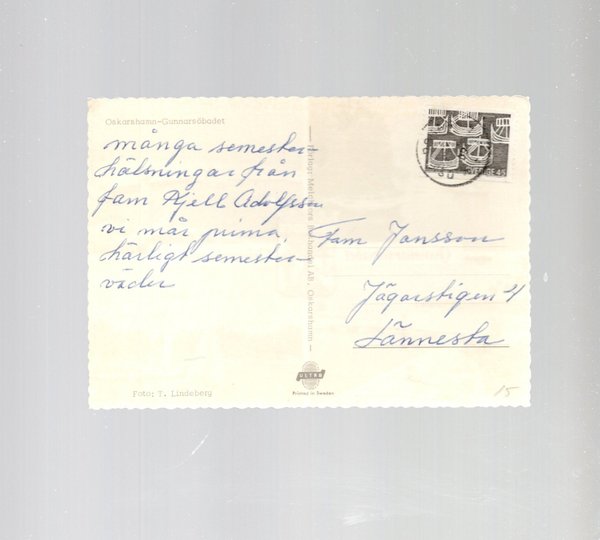 Oskarshamn-Gunnarsöbadet
många semester-
hälsningar från
fam Kjell Adolfsson
vi mår prima,
härligt semester-
väder
Foto: T. Lindeberg
Oskarshamn
ULTRA
Printed in Sweden
SVERIGE 45
Fam Jansson
Jägarstigen 4
Lännesta
15